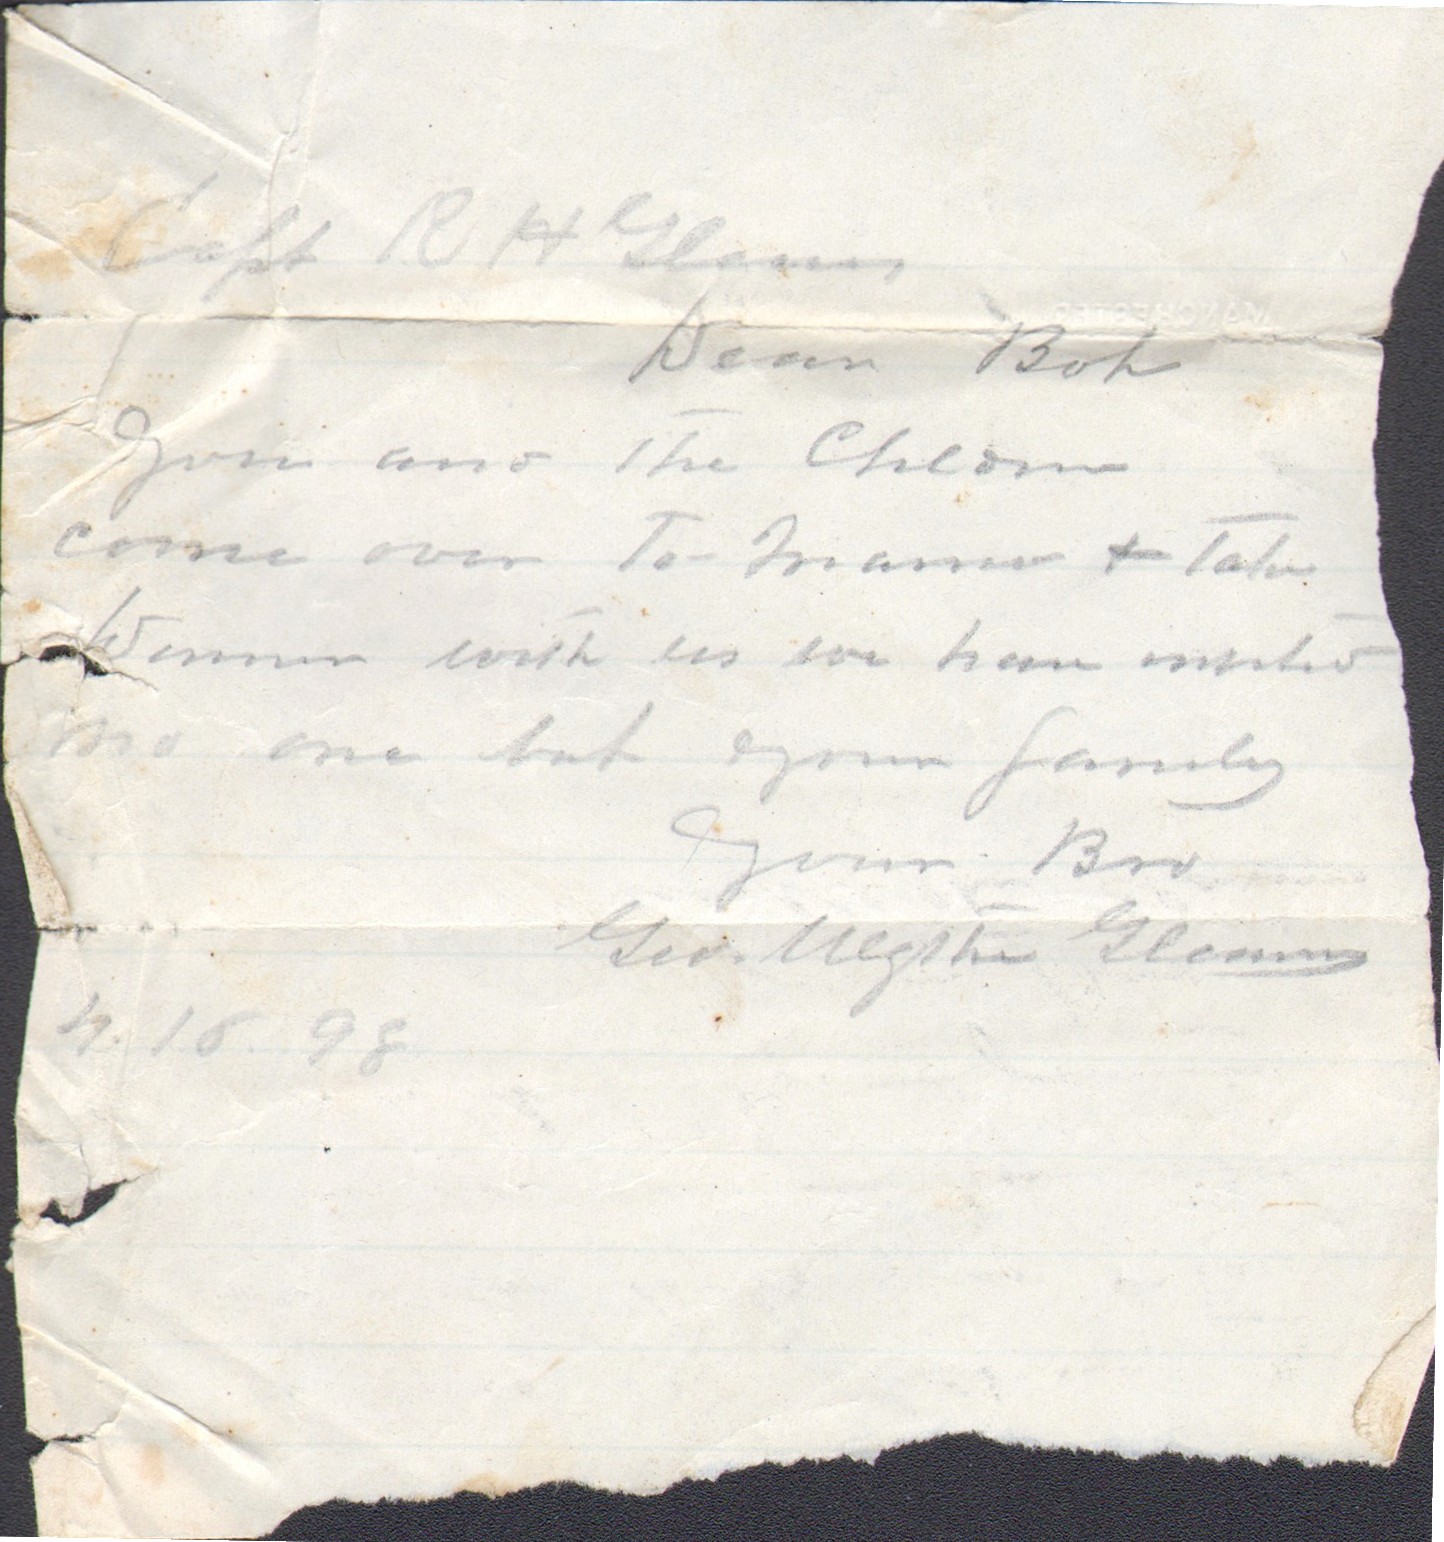 Capt R H Glenn,
Dear Bob
You and the Children
come over to Mamer & take
Dinner with us we have invited
no one but your family
Your Bro
Geo. Wythe Glenn
4. 16. 98
MANCHESTER